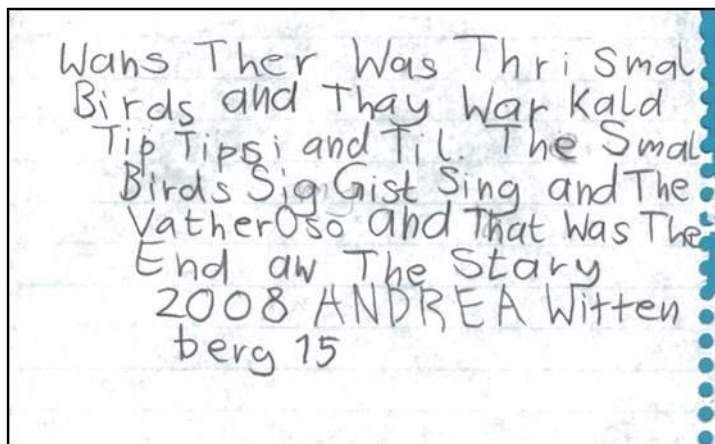 Wans Ther Was Thri Smal
Birds and Thay War Kald
Tip Tipsi and Til. The Smal
Birds Sig Gist Sing and The
Vather Oso and That Was The
End aw The Stary
2008 ANDREA Witten
berg 15